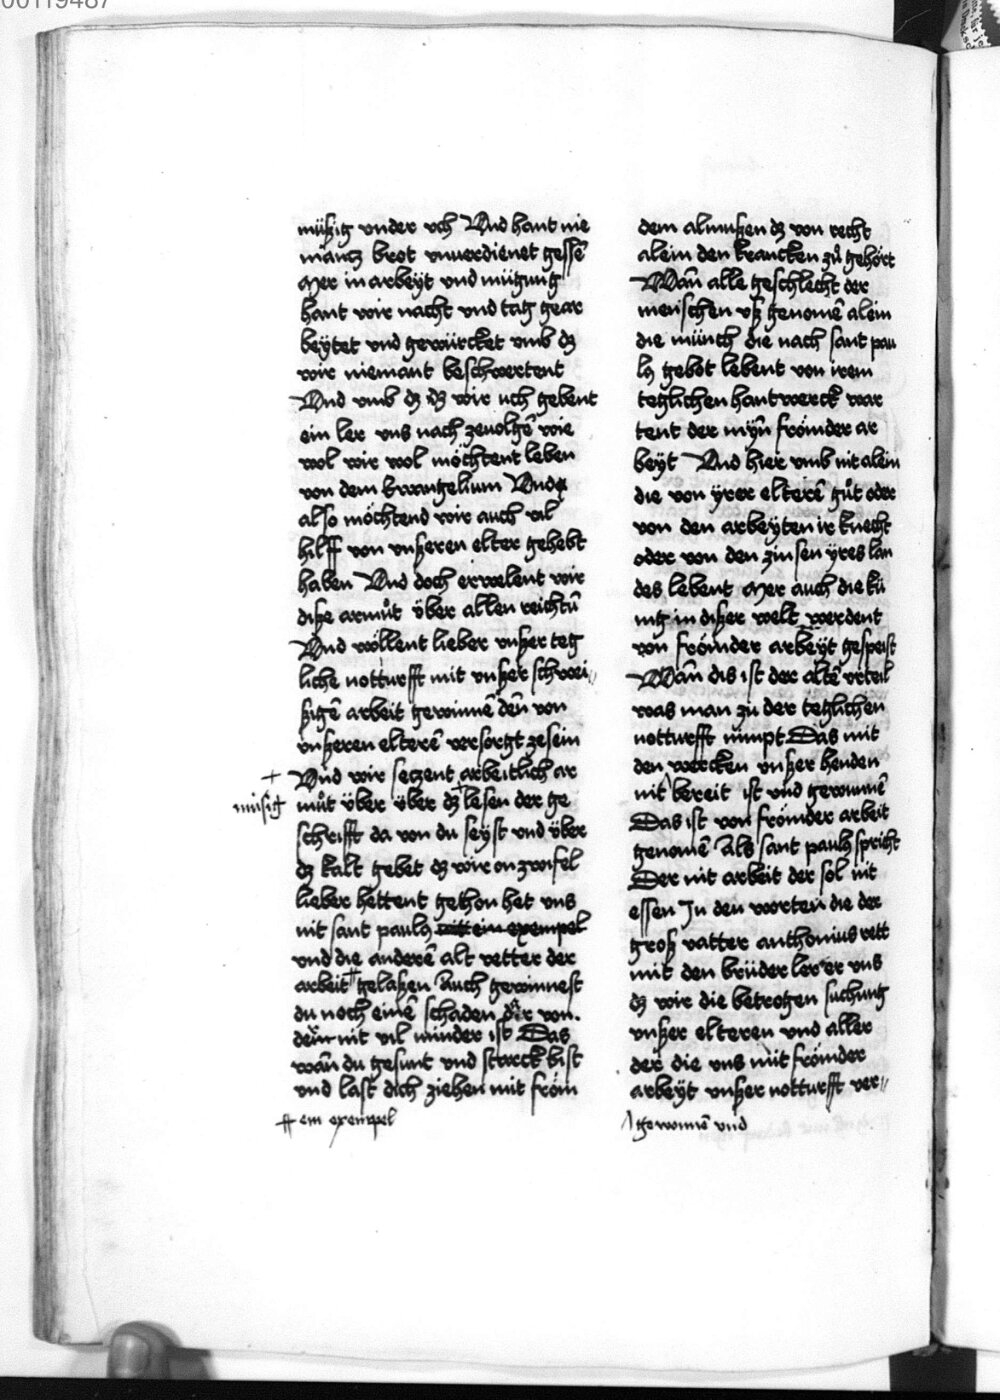 00119487
müßig vnder vch Vnd hant nie
mantz brot vnuerdienet gessē
Mer in arbeÿt vnd mügung
hant wir nacht vnd tag gear
beÿtet vnd gewürcket vmb dz
wir niemant beschwertent
Vnd vmb dz dz wir uch gebent
ein ler vns nach zeuolgē wie
wol wir wol möchtent leben
von dem Ewangelium Vnde
also möchtend wir auch vil
hilff von vnßeren elter gehebt
haben Vnd doch erwelent wir
diße armůt über allen reichtū
Vnd wöllent lieber vnßer teg
liche notturfft mit vnßer schwei
ßigē arbeit gewinnē den von
vnßeren elterē versorgt ze sein
Vnd wir setzent arbeitlich ar
müsig
můt über über dz lesen der ge
schrifft da von du seÿst vnd über
dz kalt gebet dz wir on zwifel
lieber hettent gethon het vns
nit sant paulꝯ ein exempel
vnd die anderē alt vetter der
arbeit gelaßen Auch gewinnest
du noch einē schaden dir von
dem nit vil minder ist Das
wan du gesunt vnd starck bist
vnd last dich ziehen mit fröm
ein exempel
dem almußen dz von recht
alein den krancken zů gehört
Wan̄ alle geschlecht der
menschen vß genomē alein
die münch die nach sant pau
lꝯ gebot lebent von irem
teglichen hantwerck war
tent der myn̄ frömder ar
beÿt Vnd hier vmb nit alein
die von ÿrer elterē gůt oder
von den arbeÿten ir knecht
oder von den zinsen ÿres lan
des lebent Mer auch die kü
nig in dißer welt werdent
von frömder arbeÿt gespeist
Wan̄ dis ist der altē vrteil
was man zu der teglichen
notturfft nimpt Das mit
den wercken vnßer henden
nit bereit ist vnd gewunnē
Das ist von frömder arbeit
genomē Als sant paulꝯ spricht
Der nit arbeit der sol nit
essen In den worten die der
groß vatter anthonius rett
mit den brüder lert er vns
dz wir die betrogen suchung
vnßer elteren vnd aller
der die vns mit frömder
arbeÿt vnßer notturfft ver
gewunnē vnd